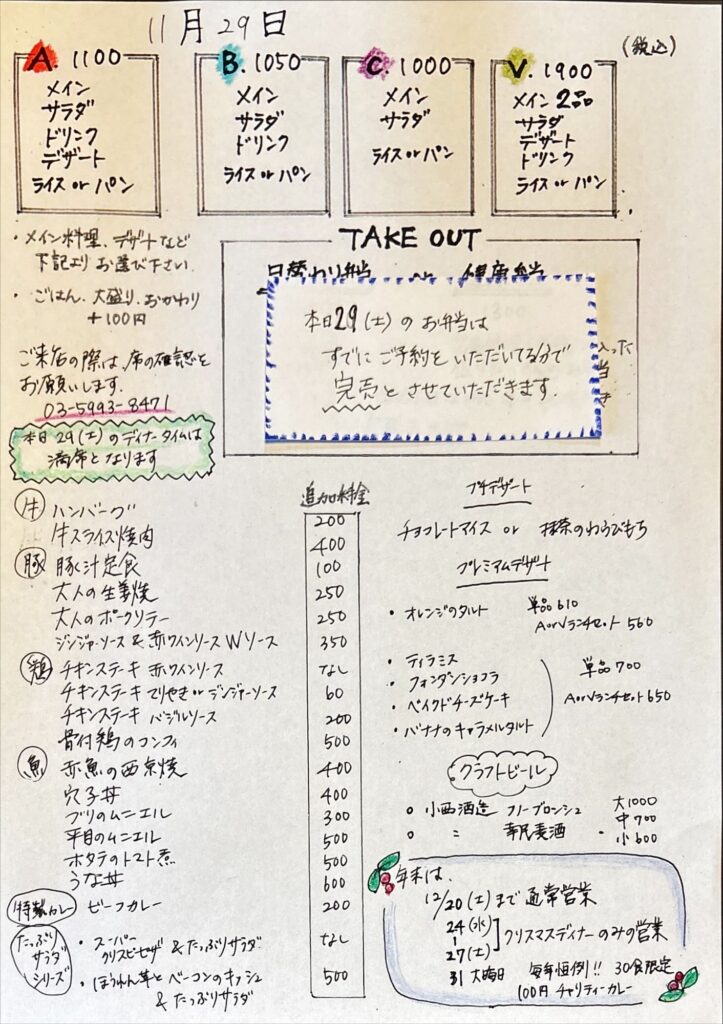 11月29日
(税込)
A. 1100
メイン
サラダ
ドリンク
デザート
ライス or パン
B. 1050
メイン
サラダ
ドリンク
ライス or パン
C. 1000
メイン
サラダ
ライス or パン
V. 1900
メイン 2品
サラダ
デザート
ドリンク
ライス or パン
・メイン料理、デザートなど
下記より お選び下さい
・ごはん、大盛り、おかわり
+100円
ご来店の際は、席の確認を
お願いします。
03-5993-8471
本日 29(土)のディナータイムは
満席となります
TAKE OUT
日替わり弁当
健康弁当
本日29(土)のお弁当は
すでにご予約をいただいてる分で
完売とさせていただきます。
入った
追加料金
牛 ハンバーグ 200
牛スライス焼肉 400
豚 豚汁定食 100
大人の生姜焼 250
大人のポークソテー 250
ジンジャーソース & 赤ワインソース Wソース 350
鶏 チキンステーキ 赤ワインソース なし
チキンステーキ てりやき or ジンジャーソース 60
チキンステーキ バジルソース 200
骨付鶏のコンフィ 500
魚 赤魚の西京焼 400
穴子丼 400
ブリのムニエル 300
平目のムニエル 500
ホタテのトマト煮 500
うな丼 600
特製カレー ビーフカレー 200
たっぷり
サラダ
シリーズ
・スーパー
クリスピーピザ & たっぷりサラダ なし
・ほうれん草とベーコンのキッシュ 500
& たっぷりサラダ
プチデザート
チョコレートマイス or 抹茶のわらびもち
プレミアムデザート
・オレンジのタルト 単品610
AorVランチセット 560
・ティラミス
・フォンダンショコラ
・ベイクドチーズケーキ
・バナナのキャラメルタルト
単品700
AorVランチセット650
クラフトビール
小西酒造
〃 幸民麦酒
大1000
中700
小600
年末は、
12/20(土)まで通常営業
24(水)
27(土)
クリスマスディナーのみの営業
31 大晦日 毎年恒例!! 30食限定
100円 チャリティーカレー